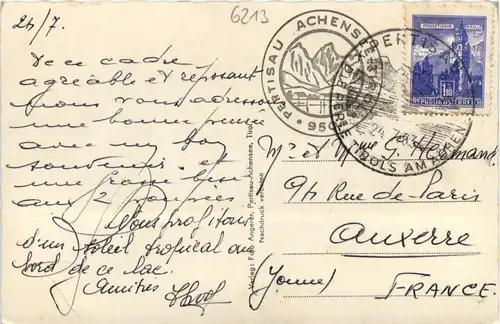 26/7.
6213
De ce cadre
agréable et reposant
nous vous adressons
une bonne pensée
avec un bon
souvenir et
une grosse bise
aux 2 poupées
Nous profitons
d'un soleil tropical au
bord de ce lac.
Amitiés
PERTISAU ACHENSEE
950
PERTISAU
24.7.63
TIROLS AM
REPUBLIK ÖSTERREICH
Verlag: Angerer, Pertisau-Achensee, Tirol
Nachdruck verboten
Mr et Mme G.
94 Rue de Paris
Auxerre
(Yonne)
FRANCE.